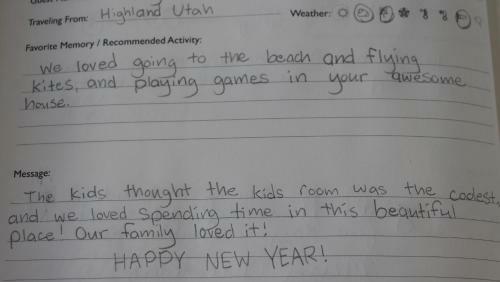 Traveling From: Highland Utah Weather:
Favorite Memory / Recommended Activity:
We loved going to the beach and flying
kites, and playing games in your awesome
house.
Message:
The kids thought the kids room was the coolest,
and we loved spending time in this beautiful
place! Our family loved it!
HAPPY NEW YEAR!